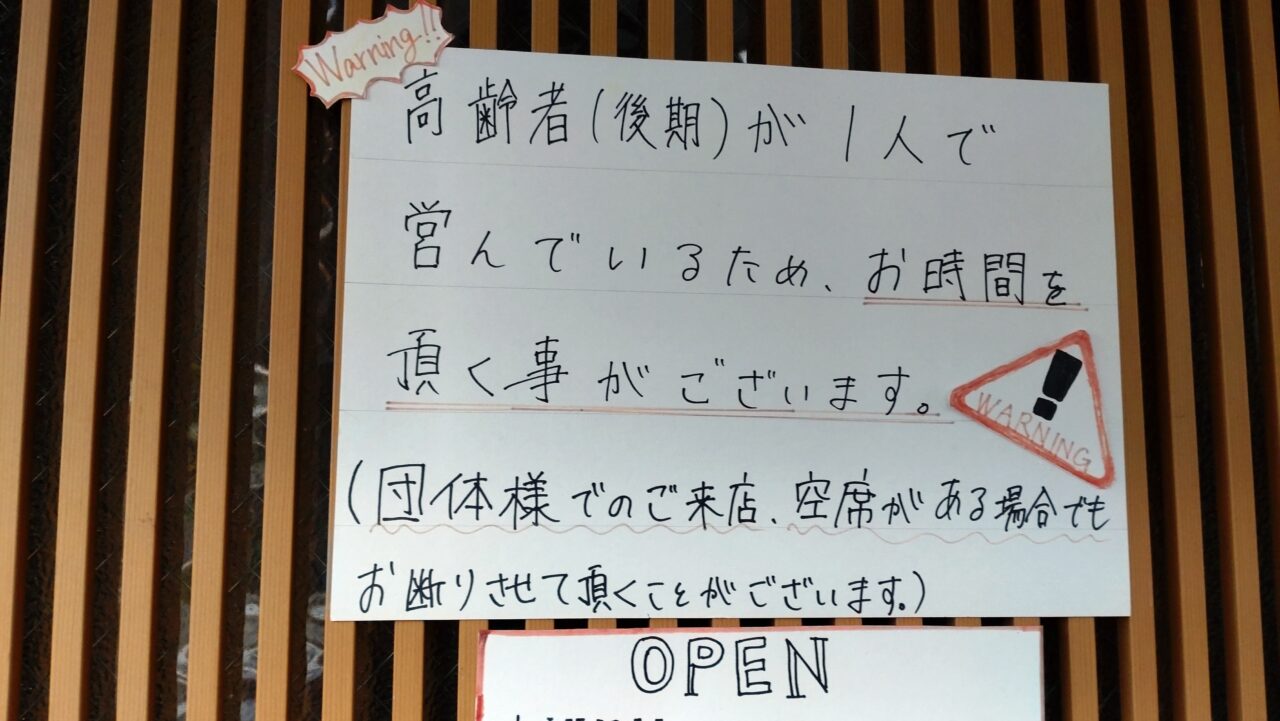 Warning!!
高齢者(後期)が1人で
営んでいるため、お時間を
頂く事がございます。
WARNING
(団体様でのご来店、空席がある場合でも
お断りさせて頂くことがございます。)
OPEN